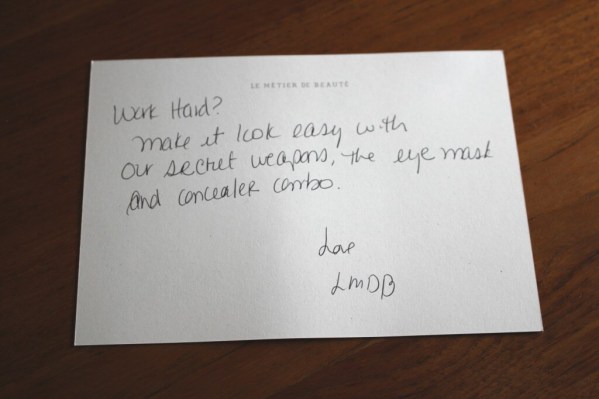 LE MÉTIER DE BEAUTÉ
Work Hard?
make it look easy with
our secret weapons, the eye mask
and concealer combo.
Love
LMDB